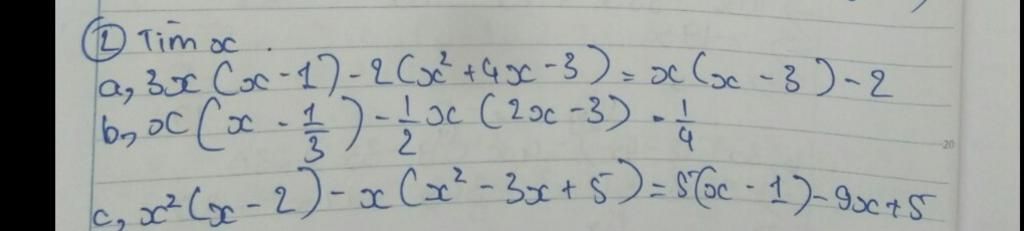 ② Tìm x.
a, 3x(x - 1) - 2(x² + 4x - 3) = x(x - 3) - 2
b, x(x - 1/3) - 1/2 x(2x - 3) = 1/4
c, x²(x - 2) - x(x² - 3x + 5) = 5(x - 1) - 9x + 5
20